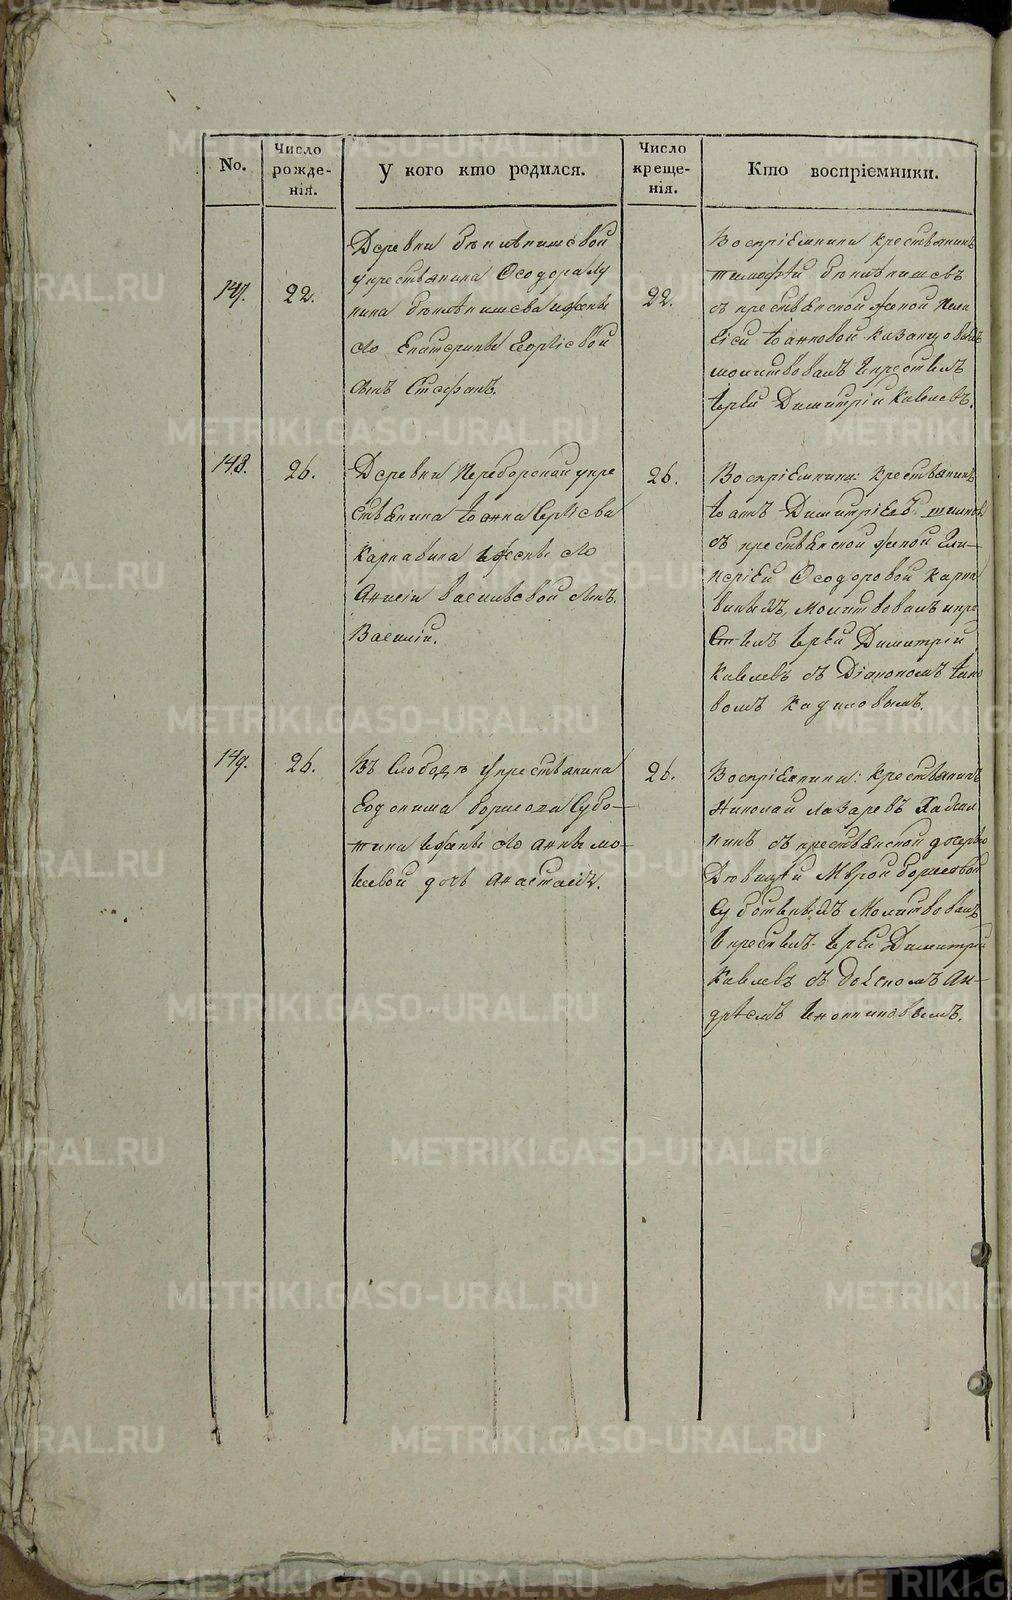 METRIKI.GASO-URAL.RU
No.
Число рожденія.
У кого кто родился.
Число крещенія.
Кто воспріемники.
147.
22.
Деревни
у крестьянина Ѳеодора Лу
кина и жены
его Екатерины Георгіевой
сынъ Стефанъ.
22.
Воспріемники крестьянинъ
Тимофѣй
съ крестьянской женой Пела
гіей Іоанновой Казанцовыхъ
молитвовалъ и крестилъ
Іерей Димитрій
148.
26.
Деревни Переборской у кре
стьянина Іоанна Сергіева
Карнавина и жены его
Анисіи Васильевой сынъ
Василій.
26.
Воспріемники: крестьянинъ
Іоаннъ Димитріевъ
съ крестьянской женой Гли
керіей Ѳеодоровой Карна
виныхъ, молитвовалъ и кре
стилъ Іерей Димитрій
съ Діакономъ
вомъ Кадиловымъ.
149.
26.
Въ Слободѣ у крестьянина
Евдокима Борисова Субо–
тина и жены его Анны Мо–
исеевой дочь Анастасія.
26.
Воспріемники: крестьянинъ
Николай Лазаревъ
съ крестьянской дочерью
Дѣвицей Борисовой
Суботиныхъ молитвовалъ
и крестилъ Іерей Димитрій
съ Ан–
дреемъ Иконниковымъ.